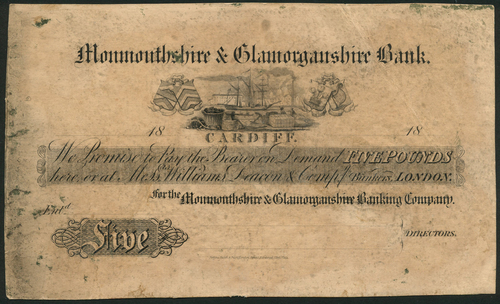 Monmouthshire & Glamorganshire Bank.
18 18
CARDIFF
We Promise to Pay the Bearer on Demand FIVE POUNDS
here, or at Messrs Williams Deacon & Compy Bankers, LONDON.
For the Monmouthshire & Glamorganshire Banking Company.
Entd
Five
DIRECTORS.